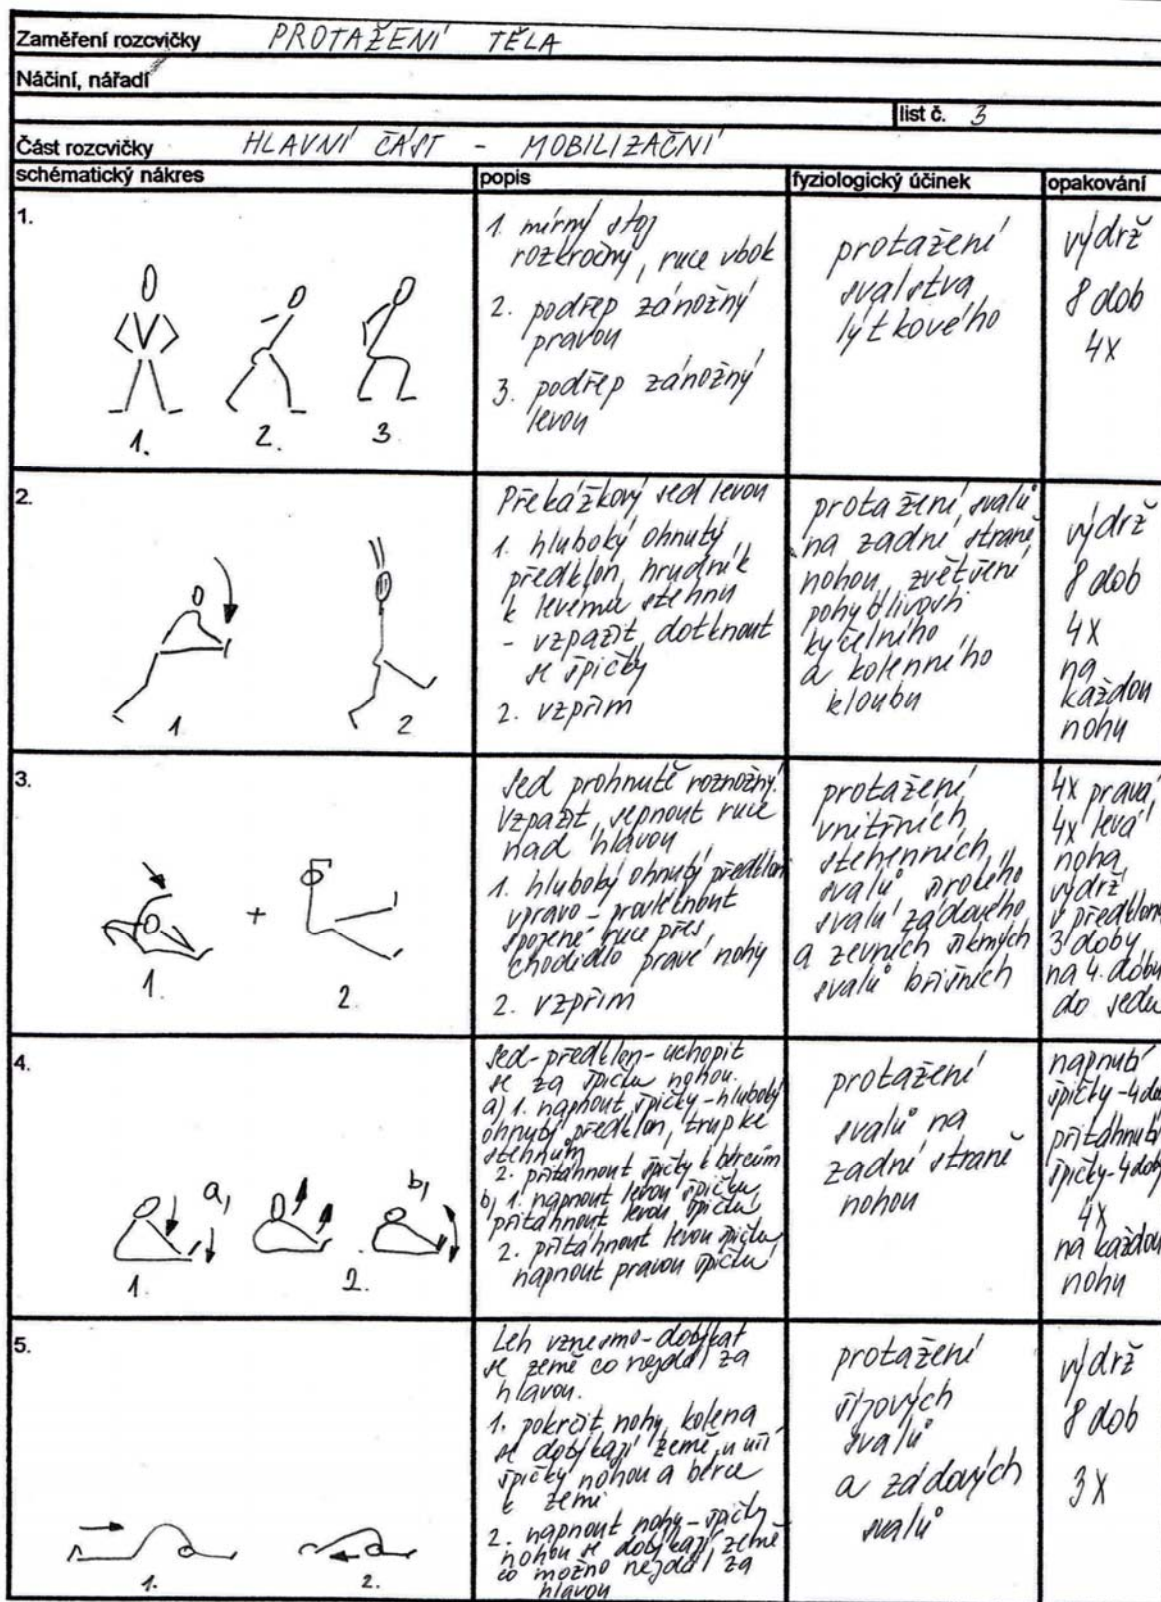 Zaměření rozcvičky PROTAŽENÍ TĚLA
Náčiní, nářadí
list č. 3
Část rozcvičky HLAVNÍ ČÁST - MOBILIZAČNÍ
schématický nákres popis fyziologický účinek opakování
1.
1. 2. 3
1. mírný stoj
rozkročný, ruce vbok
2. podřep zánožný
pravou
3. podřep zánožný
levou
protažení
svalstva
lýtkového
výdrž
8 dob
4x
2.
1 2
Překážkový sed levou
1. hluboký ohnutý
předklon, hrudník
k levému stehnu
- vzpažit, dotknout
se špičky
2. vzpřim
protažení svalů
na zadní straně
nohou, zvětšení
pohyblivosti
kyčelního
a kolenního
kloubu
výdrž
8 dob
4x
na
každou
nohu
3.
1. + 2.
Sed prohnutě roznožný.
Vzpažit, sepnout ruce
nad hlavou
1. hluboký ohnutý předklon
vpravo - provléknout
spojené ruce přes
chodidlo pravé nohy
2. vzpřim
protažení
vnitřních
stehenních
svalů širokého
svalu zádového
a zevních šikmých
svalů břišních
4x pravá,
4x levá
noha,
výdrž
v předklonu
3 doby
na 4. dobu
do sedu
4.
a, b,
1. 2.
Sed-předklon-uchopit
se za špičku nohou.
a) 1. napnout špičky-hluboký
ohnutý předklon, trup ke
stehnům
2. přitáhnout špičky k bércům
b, 1. napnout levou špičku
přitáhnout levou špičku
2. přitáhnout levou špičku
napnout pravou špičku
protažení
svalů na
zadní straně
nohou
napnutí
špičky-4 dob
přitáhnutí
špičky-4 doby
4x
na každou
nohu
5.
1. 2.
Leh vznesmo-dotýkat
se země co nejdál za
hlavou.
1. pokrčit nohy, kolena
se dotýkají země u uší
špičky nohou a bérce
k zemi
2. napnout nohy-špičky
nohou se dotýkají země
co možno nejdál za
hlavou
protažení
šíjových
svalů
a zádových
svalů
výdrž
8 dob
3x